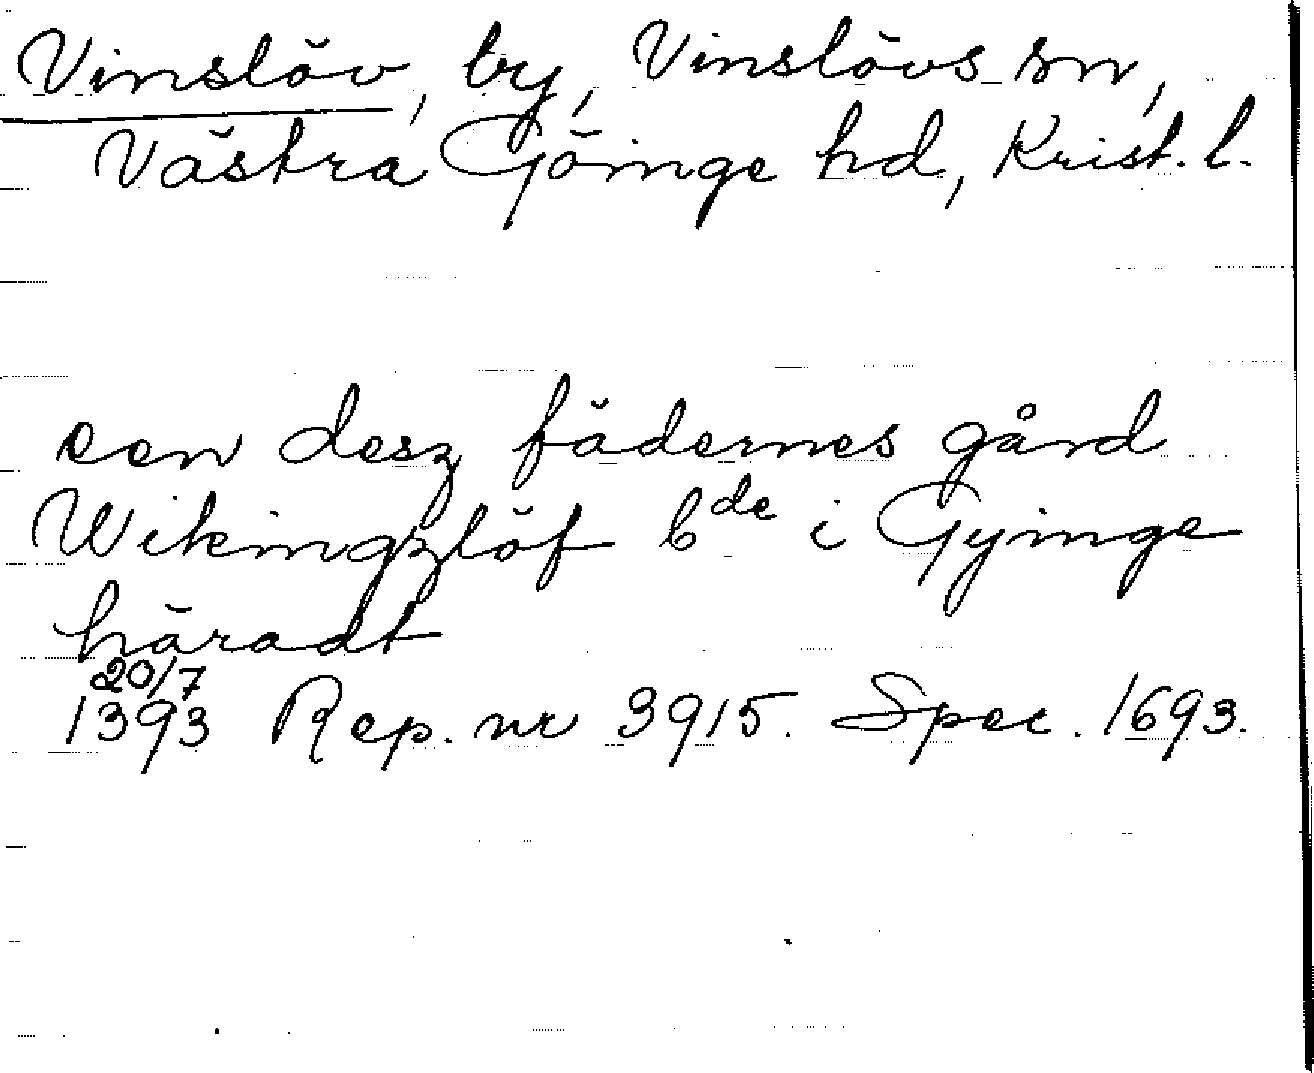 Vinslöv, by, Vinslövs sn,
Västra Göinge hd, Krist. l.
een desz fädernes gård
Wikingzlöf bde i Gyinge
häradt
20/7
1393 Rep. nr 3915. Spec. 1693.